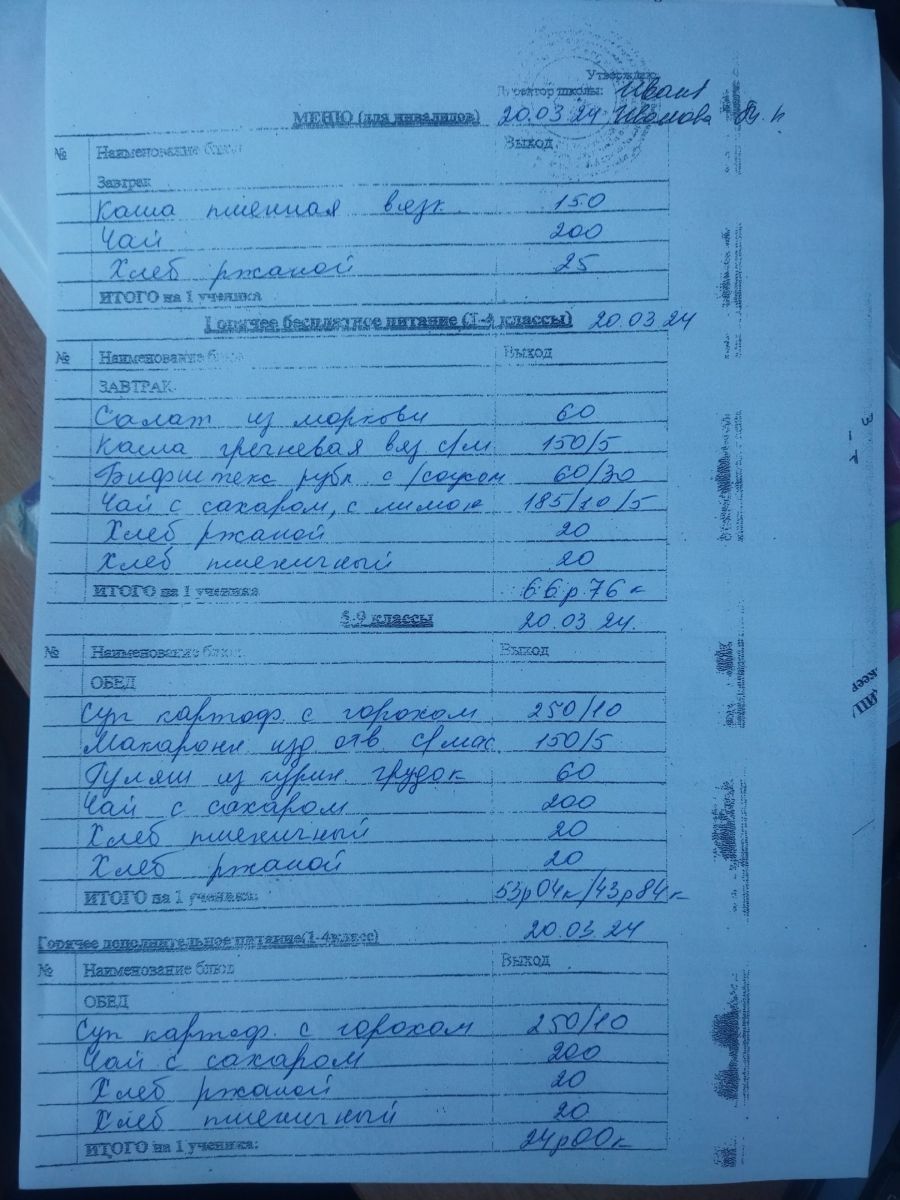 Утверждаю
Директор школы:
МЕНЮ (для инвалидов) 20.03 24 Иванова
№ Наименование блюд Выход
Завтрак
Каша пшенная вязк 150
Чай 200
Хлеб ржаной 25
ИТОГО на 1 ученика
Горячее бесплатное питание (1-4 классы) 20.03 24
№ Наименование блюд Выход
ЗАВТРАК
Салат из моркови 60
Каша гречневая вяз с/м 150/5
Бифштекс рубл с/соусом 60/30
Чай с сахаром, с лимон 185/10/5
Хлеб ржаной 20
Хлеб пшеничный 20
ИТОГО на 1 ученика 66р 76к
5-9 классы 20.03 24.
№ Наименование блюд Выход
ОБЕД
Суп картоф. с горохом 250/10
Макарон изд отв с/мас. 150/5
Гуляш из курин. грудок 60
Чай с сахаром 200
Хлеб пшеничный 20
Хлеб ржаной 20
ИТОГО на 1 ученика: 53р04к/43р84к
20.03 24
Горячее дополнительное питание(1-4класс)
№ Наименование блюд Выход
ОБЕД
Суп картоф. с горохом 250/10
Чай с сахаром 200
Хлеб ржаной 20
Хлеб пшеничный 20
ИТОГО на 1 ученика: 24р00к